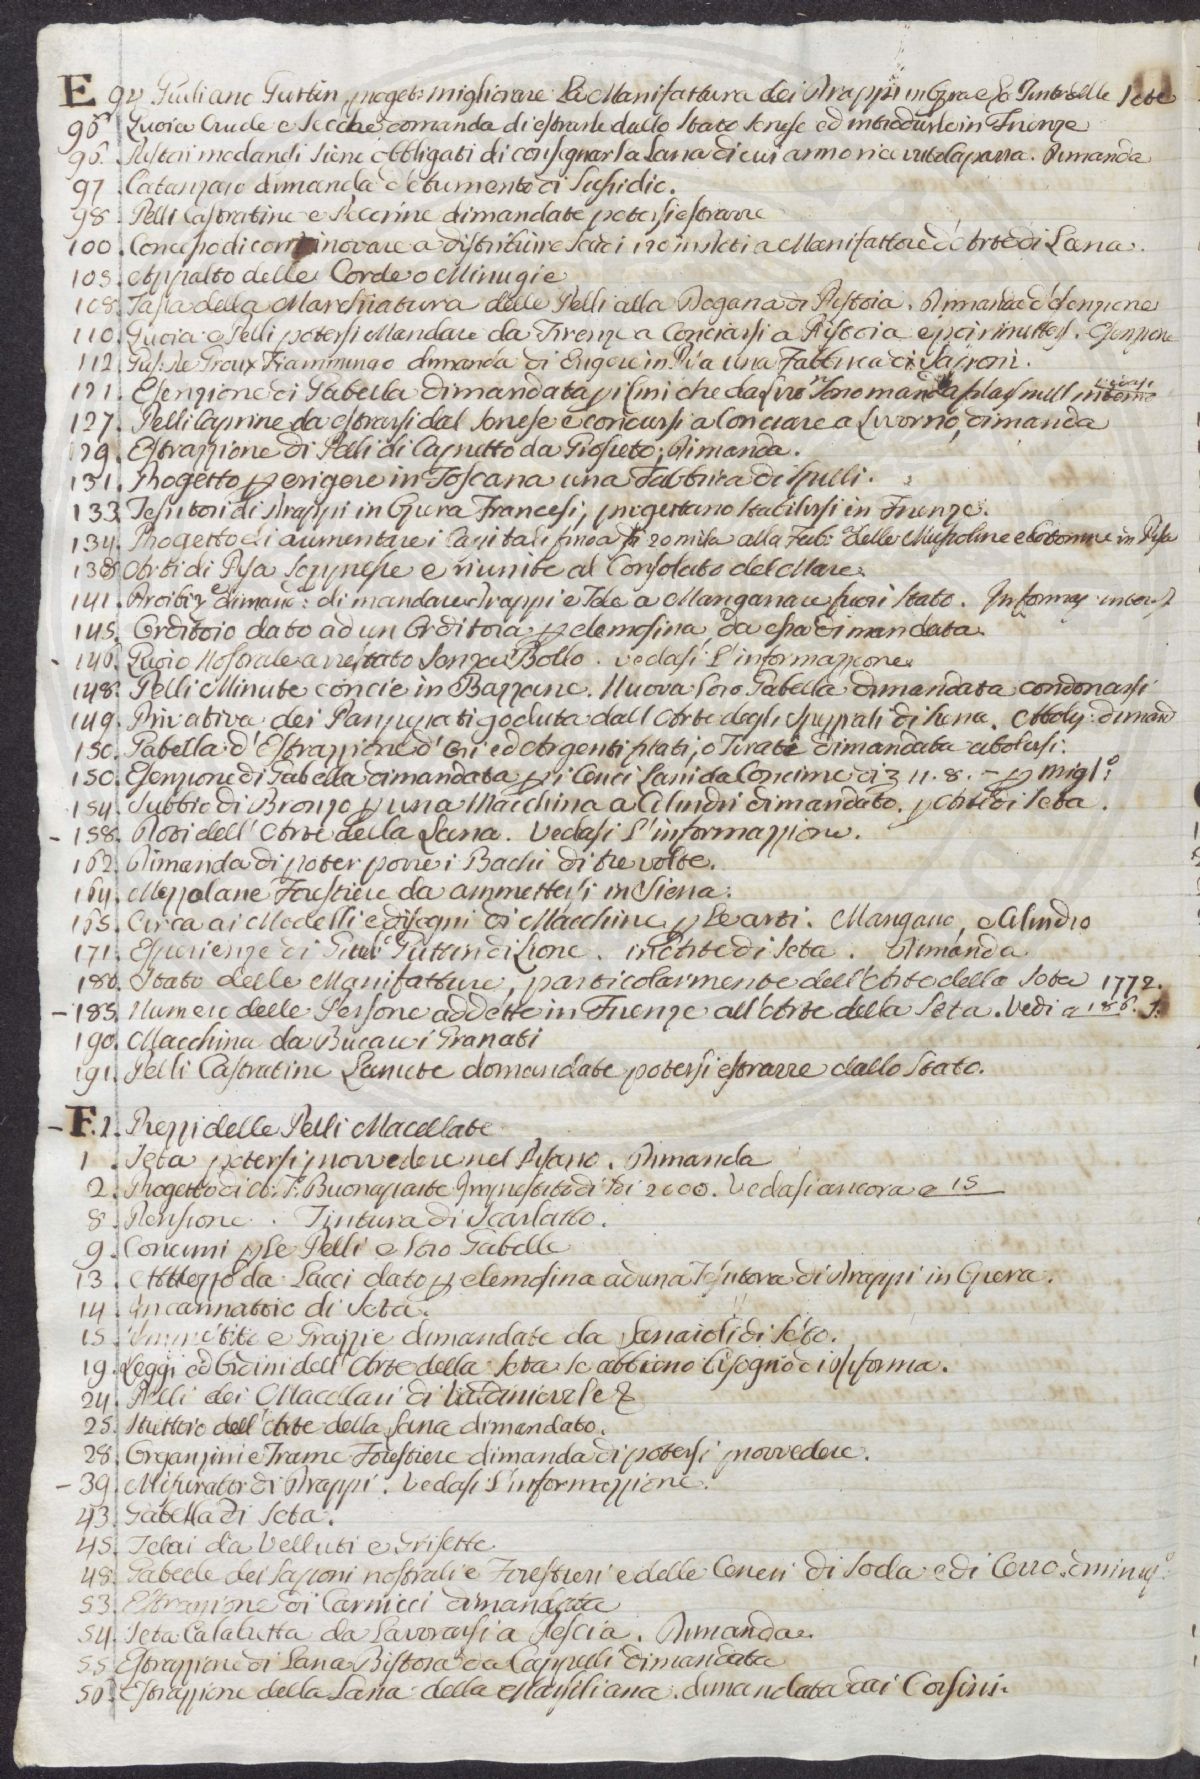 E 94 Giuliano Guttin, progetti migliorare la Manifattura dei Drappi in Opera e la Tinta delle Sete
95 Quoia Crude e Secche domanda di estrarle dallo Stato Senese ed introdurle in Firenze
96. Pastori mediandi siene obbligati di consegnar la Lana di cui anno ricevuto la parra. Dimanda
97 Catanzaro dimanda d'etumento di Sussidio.
98 Pelli Castratine e Pecorine dimandate potersi estrarre
100. Concesso di continovare a distribuire Scudi 120 in Aiuti a Manifattore d'Arte di Lana.
105. Appalto delle Corde o Minugie
108. Tassa della Marchiatura delle Pelli alla Dogana di Pistoia. Dimanda d'Esenzione
110. Quoia e Pelli potersi Mandare da Firenze a Conciarsi a Pistoia e poi rimettersi. Esenzione
112. Gius: Le Groux Fiammingo dimanda di Erigere in Pisa una Fabbrica di Saponi.
121. Esenzione di Gabella dimandata p i lini che da fuori sono mandati a filare nell'interno
127. Pelli Caprine da estrarsi dal Senese e condursi a Conciare a Livorno, dimanda
129. Estrazzione di Pelli di Capretto da Grosseto, Dimanda.
131. Progetto p erigere in Toscana una Fabbrica di Spilli.
133. Tessitori di Drappi in Opera Francesi, progettano stabilirsi in Firenze.
134. Progetto di aumentare i Capitali fino a 20 mila alla Fab: delle Mussoline e Cotonine in Pisa
138. Arti di Pisa soppresse e riunite al Consolato del Mare.
141. Proibizne dimand: di mandare Drappi e Tele a Manganare fuori Stato. Informaz intorno
145. Orditoio dato ad un Orditora p elemosina da essa dimandata.
- 146. Quoio Nostrale arrestato senza Bollo. vedasi l'informazione
148. Pelli Minute concie in Bazzane. Nuova loro Gabella dimandata condonarsi
149. Privativa dei Panni goduta dall'Arte degli Speziali di Siena. Aboliz: dimand
150. Gabella d'Estrazzione d'Ori ed Argenti filati, o Tirati dimandata abolirsi.
150. Esenzione di Gabella dimandata p i Cenci Lani da Concime di 11. 8. - p migl:o
154. Subbio di Bronzo p una Macchina a Cilindri dimandato. p Arte di Seta.
- 158. Roti dell'Arte della Lana. Vedasi l'informazzione.
162. Dimanda di poter porre i Bachi di tre volte.
164. Mezzolane Forestiere da ammettersi in Siena.
165. Circa ai Modelli e disegni di Macchine p le arti. Mangano, e Cilindro
171. Esperienze di Giul: Guttin di Lione. in Arte di Seta. Dimanda
180. Stato delle Manifatture, particolarmente dell'Arte della Seta 1772.
- 185. Numero delle Persone addette in Firenze all'Arte della Seta. Vedi a 186. t.
190. Macchina da Bucare i Granati
191. Pelli Castratine Lanute domandate potersi estrarre dallo Stato.
- F. 1. Prezzi delle Pelli Macellate
1. Seta potersi provvedere nel Pisano. Dimanda
2. Progetto di A: F: Buonaparte Imprestito di sdi 2000. Vedasi ancora a 15
8. Pensione. Tintura di Scarlatto.
9. Concimi p le Pelli e loro Gabelle
13. Attrezzo da Lacci dato p elemosina ad una Tessitora di Drappi in Opera.
14. Incannattio di Seta.
15. e Grazzie dimandate da Lanaioli di
19. Leggi ed Ordini dell'Arte della Seta se abbiano bisogno di Riforma.
24. Pelli dei Macellari di
25. Stutturo dell'Arte della Lana dimandato.
28. Organzini e Trame Forestiere dimanda di potersi provvedere.
- 39. Misurator di Drappi. Vedasi l'informazzione.
43. Gabella di Seta.
45. Telai da Velluti e Grisette
48. Gabelle dei Saponi nostrali e Forestieri e delle Ceneri di Soda e di Cerro. diminuz:
53. Estrazzione di Carnicci dimandata
54. Seta Calabretta da Lavorarsi a Pescia. Dimanda.
55. Estrazzione di Lana Bistosa da Cappelli dimandata
50. Estrazzione della Lana della Marsiliana. dimandata dai Corsini.